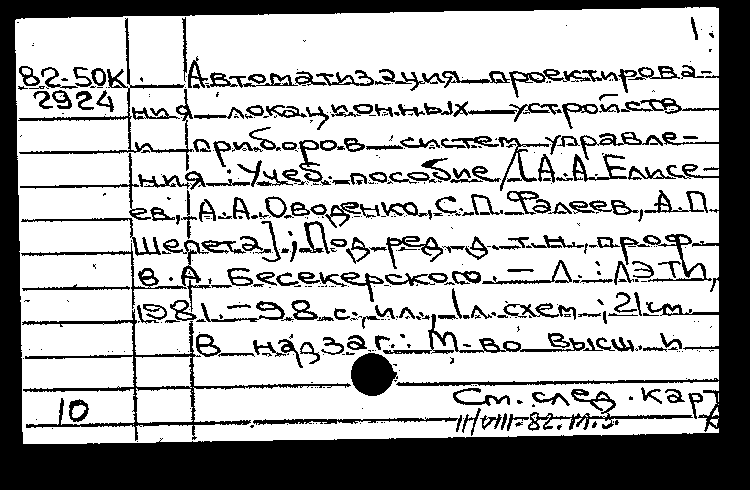 1.
82-50К. Автоматизация проектирова-
2924 ния локационных устройств
и приборов систем управле-
ния : Учеб. пособие /[А.А. Елисе-
ев, А.А. Оводенко, С.П. Фалеев, А.П.
Шепета]; Под ред. д.т.н., проф.
В.А. Бесекерского. — Л. : ЛЭТИ,
1981. — 98 с., ил., 1 л. схем ; 21 см.
В надзаг.: М-во высш. и
10 См. след. карт
11/VIII-82. М.З.